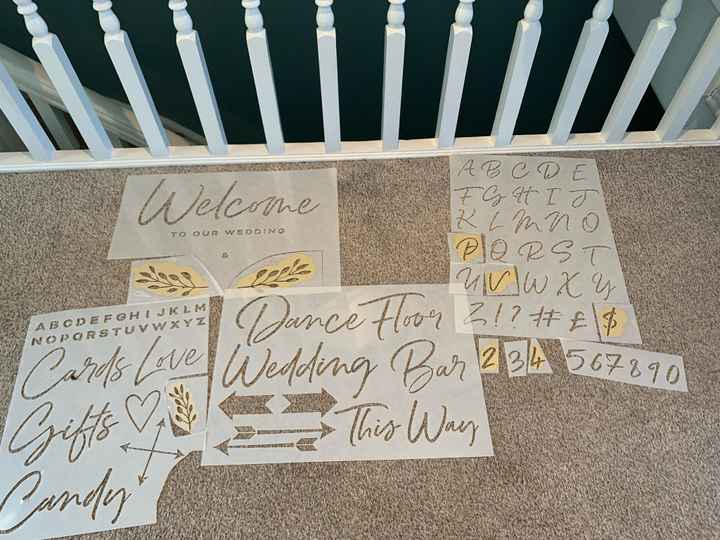 Welcome
TO OUR WEDDING
&
A B C D E
F G H I J
K L M N O
P Q R S T
U V W X Y
Z ! ? # £ $
2 3 4 5 6 7 8 9 0
A B C D E F G H I J K L M
N O P Q R S T U V W X Y Z
Cards Love
Gifts
Candy
Dance Floor
Wedding Bar
This Way